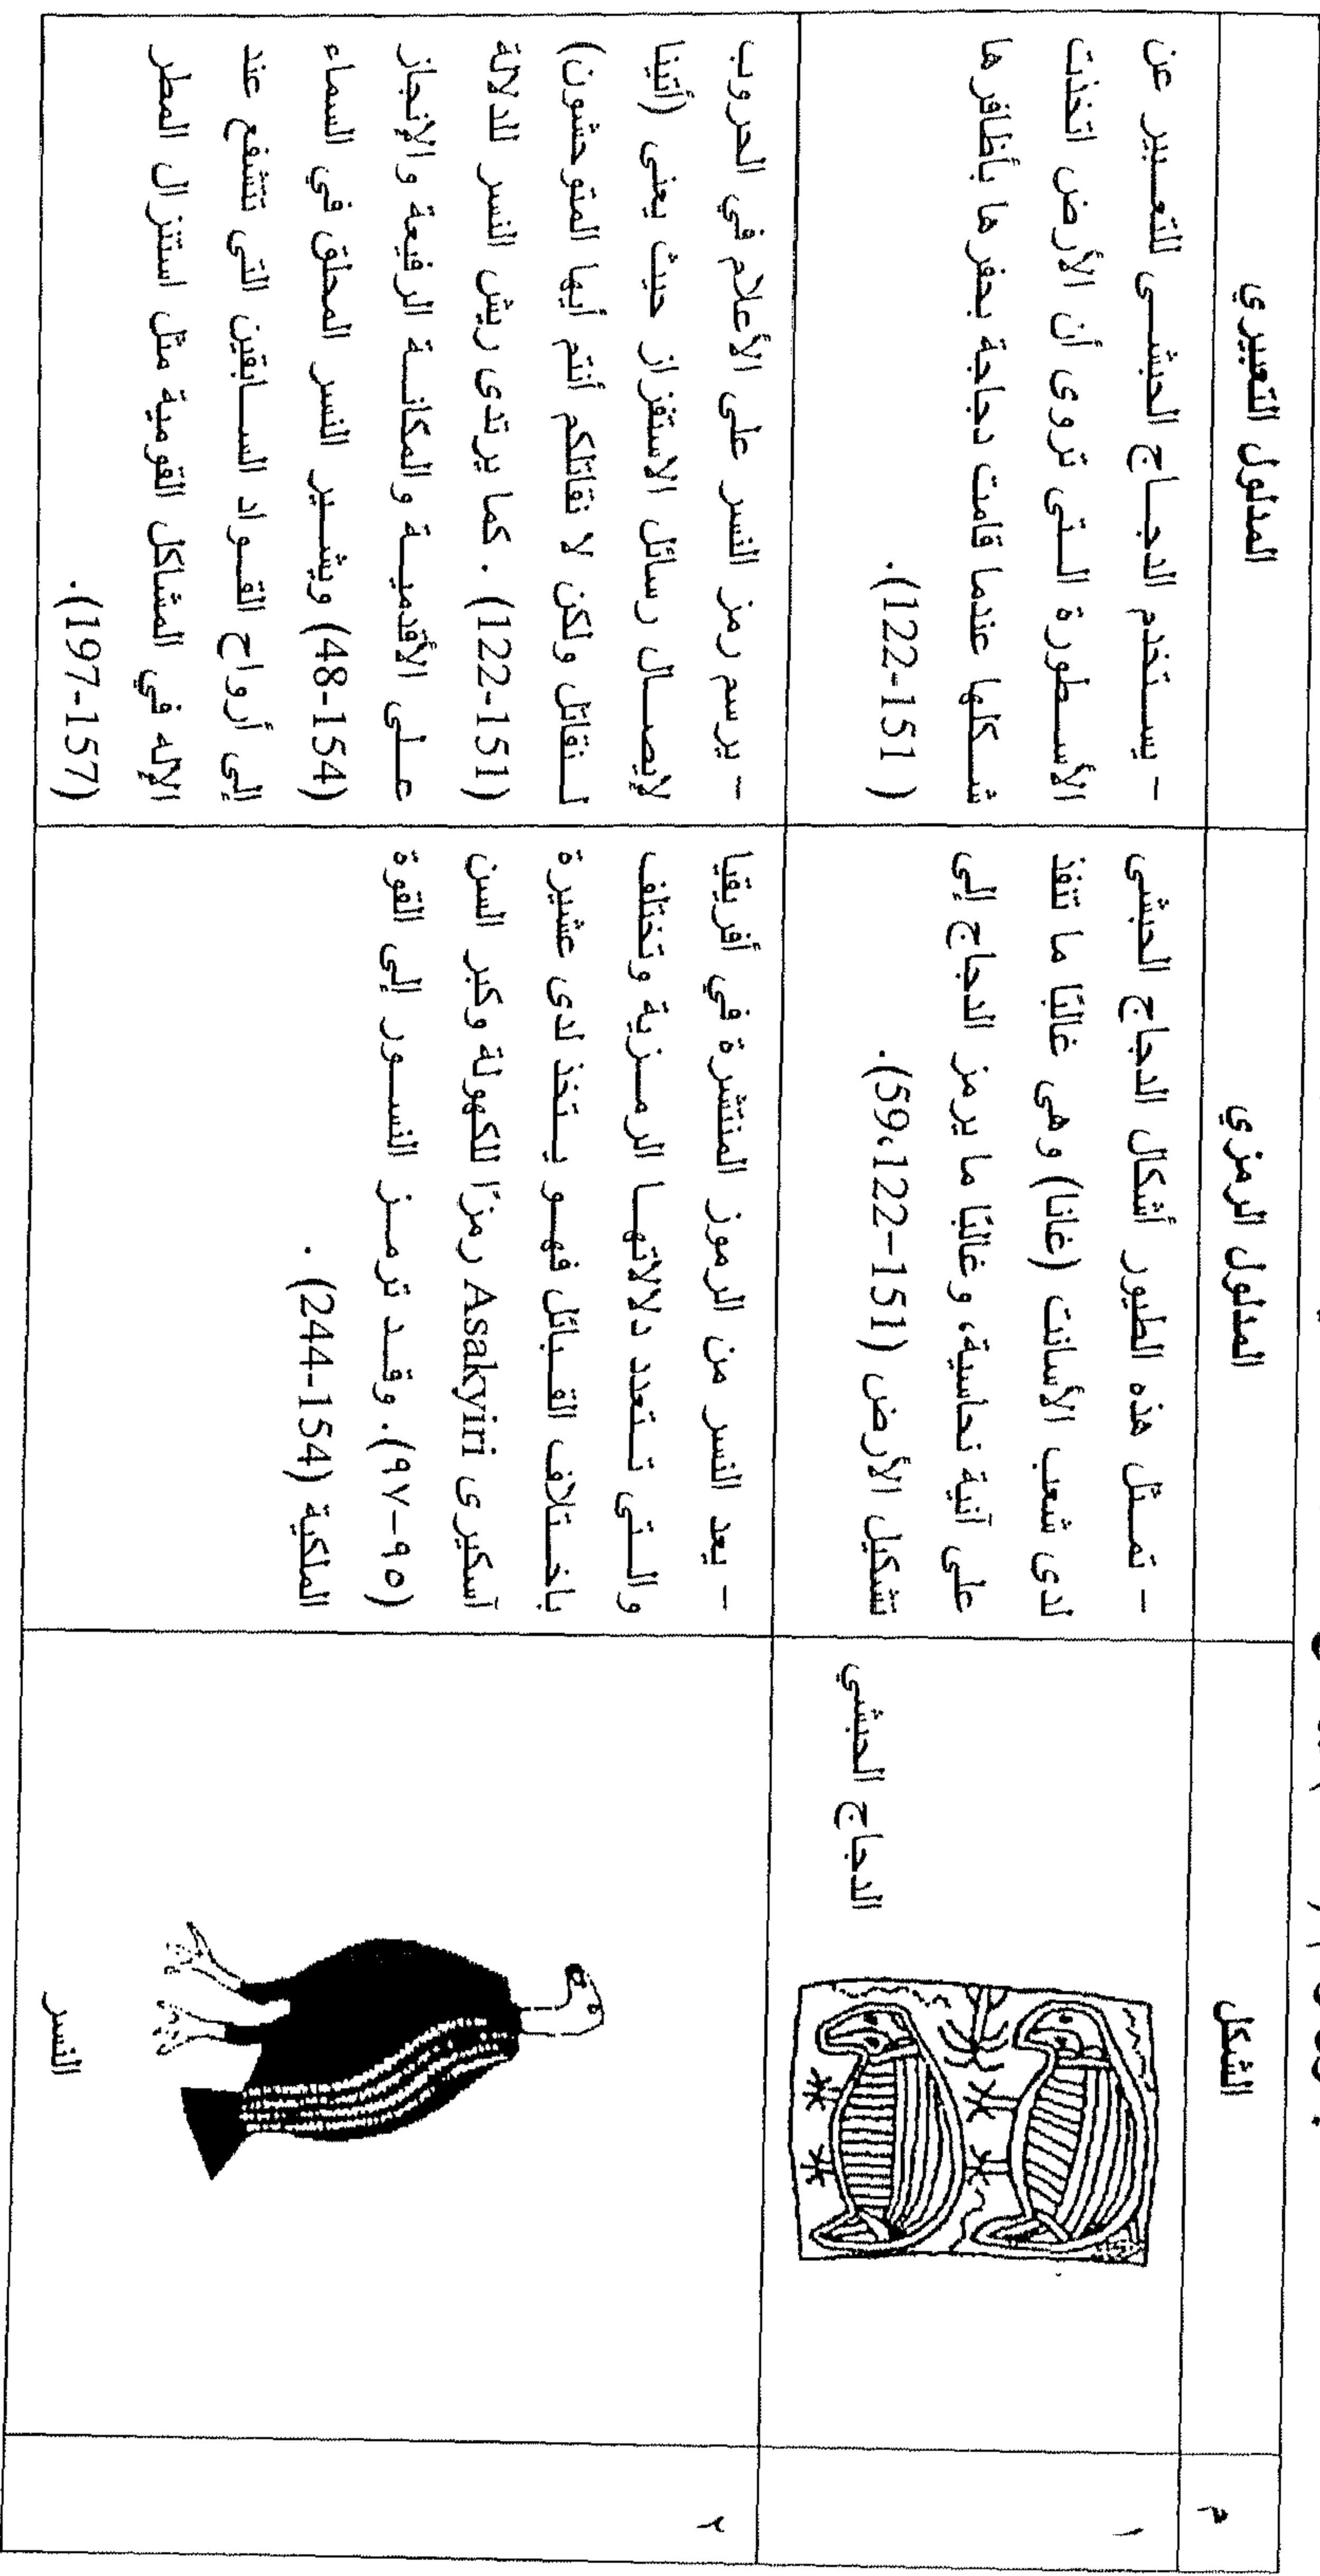 م
الشكل
المدلول الرمزي
المدلول التعبيري
١
الدجاج الحبشي
- تمثل هذه الطيور أشكال الدجاج الحبشى
لدى شعب الأسانت (غانا) وهى غالبًا ما تنفذ
على آنية نحاسية، وغالبًا ما يرمز الدجاج إلى
تشكيل الأرض (151-59،122).
- يستخدم الدجاج الحبشى للتعبير عن
الأسطورة التى تروى أن الأرض اتخذت
شكلها عندما قامت دجاجة بحفرها بأظافرها
(122-151).
٢
النسر
- يعد النسر من الرموز المنتشرة في أفريقيا
والتى تتعدد دلالاتها الرمزية وتختلف
باختلاف القبائل فهو يتخذ لدى عشيرة
آسكيرى Asakyiri رمزًا للكهولة وكبر السن
(٩٥-٩٧). وقد ترمز النسور إلى القوة
الملكية (154-244).
- يرسم رمز النسر على الأعلام في الحروب
لإيصال رسائل الاستفزاز حيث يعنى (أتينا
لنقاتل ولكن لا نقاتلكم أنتم أيها المتوحشون)
(122-151). كما يرتدى ريش النسر للدلالة
على الأقدمية والمكانة الرفيعة والإنجاز
(48-154) ويشير النسر المحلق في السماء
إلى أرواح القواد السابقين التى تتشفع عند
الإله في المشاكل القومية مثل استنزال المطر
(197-157).